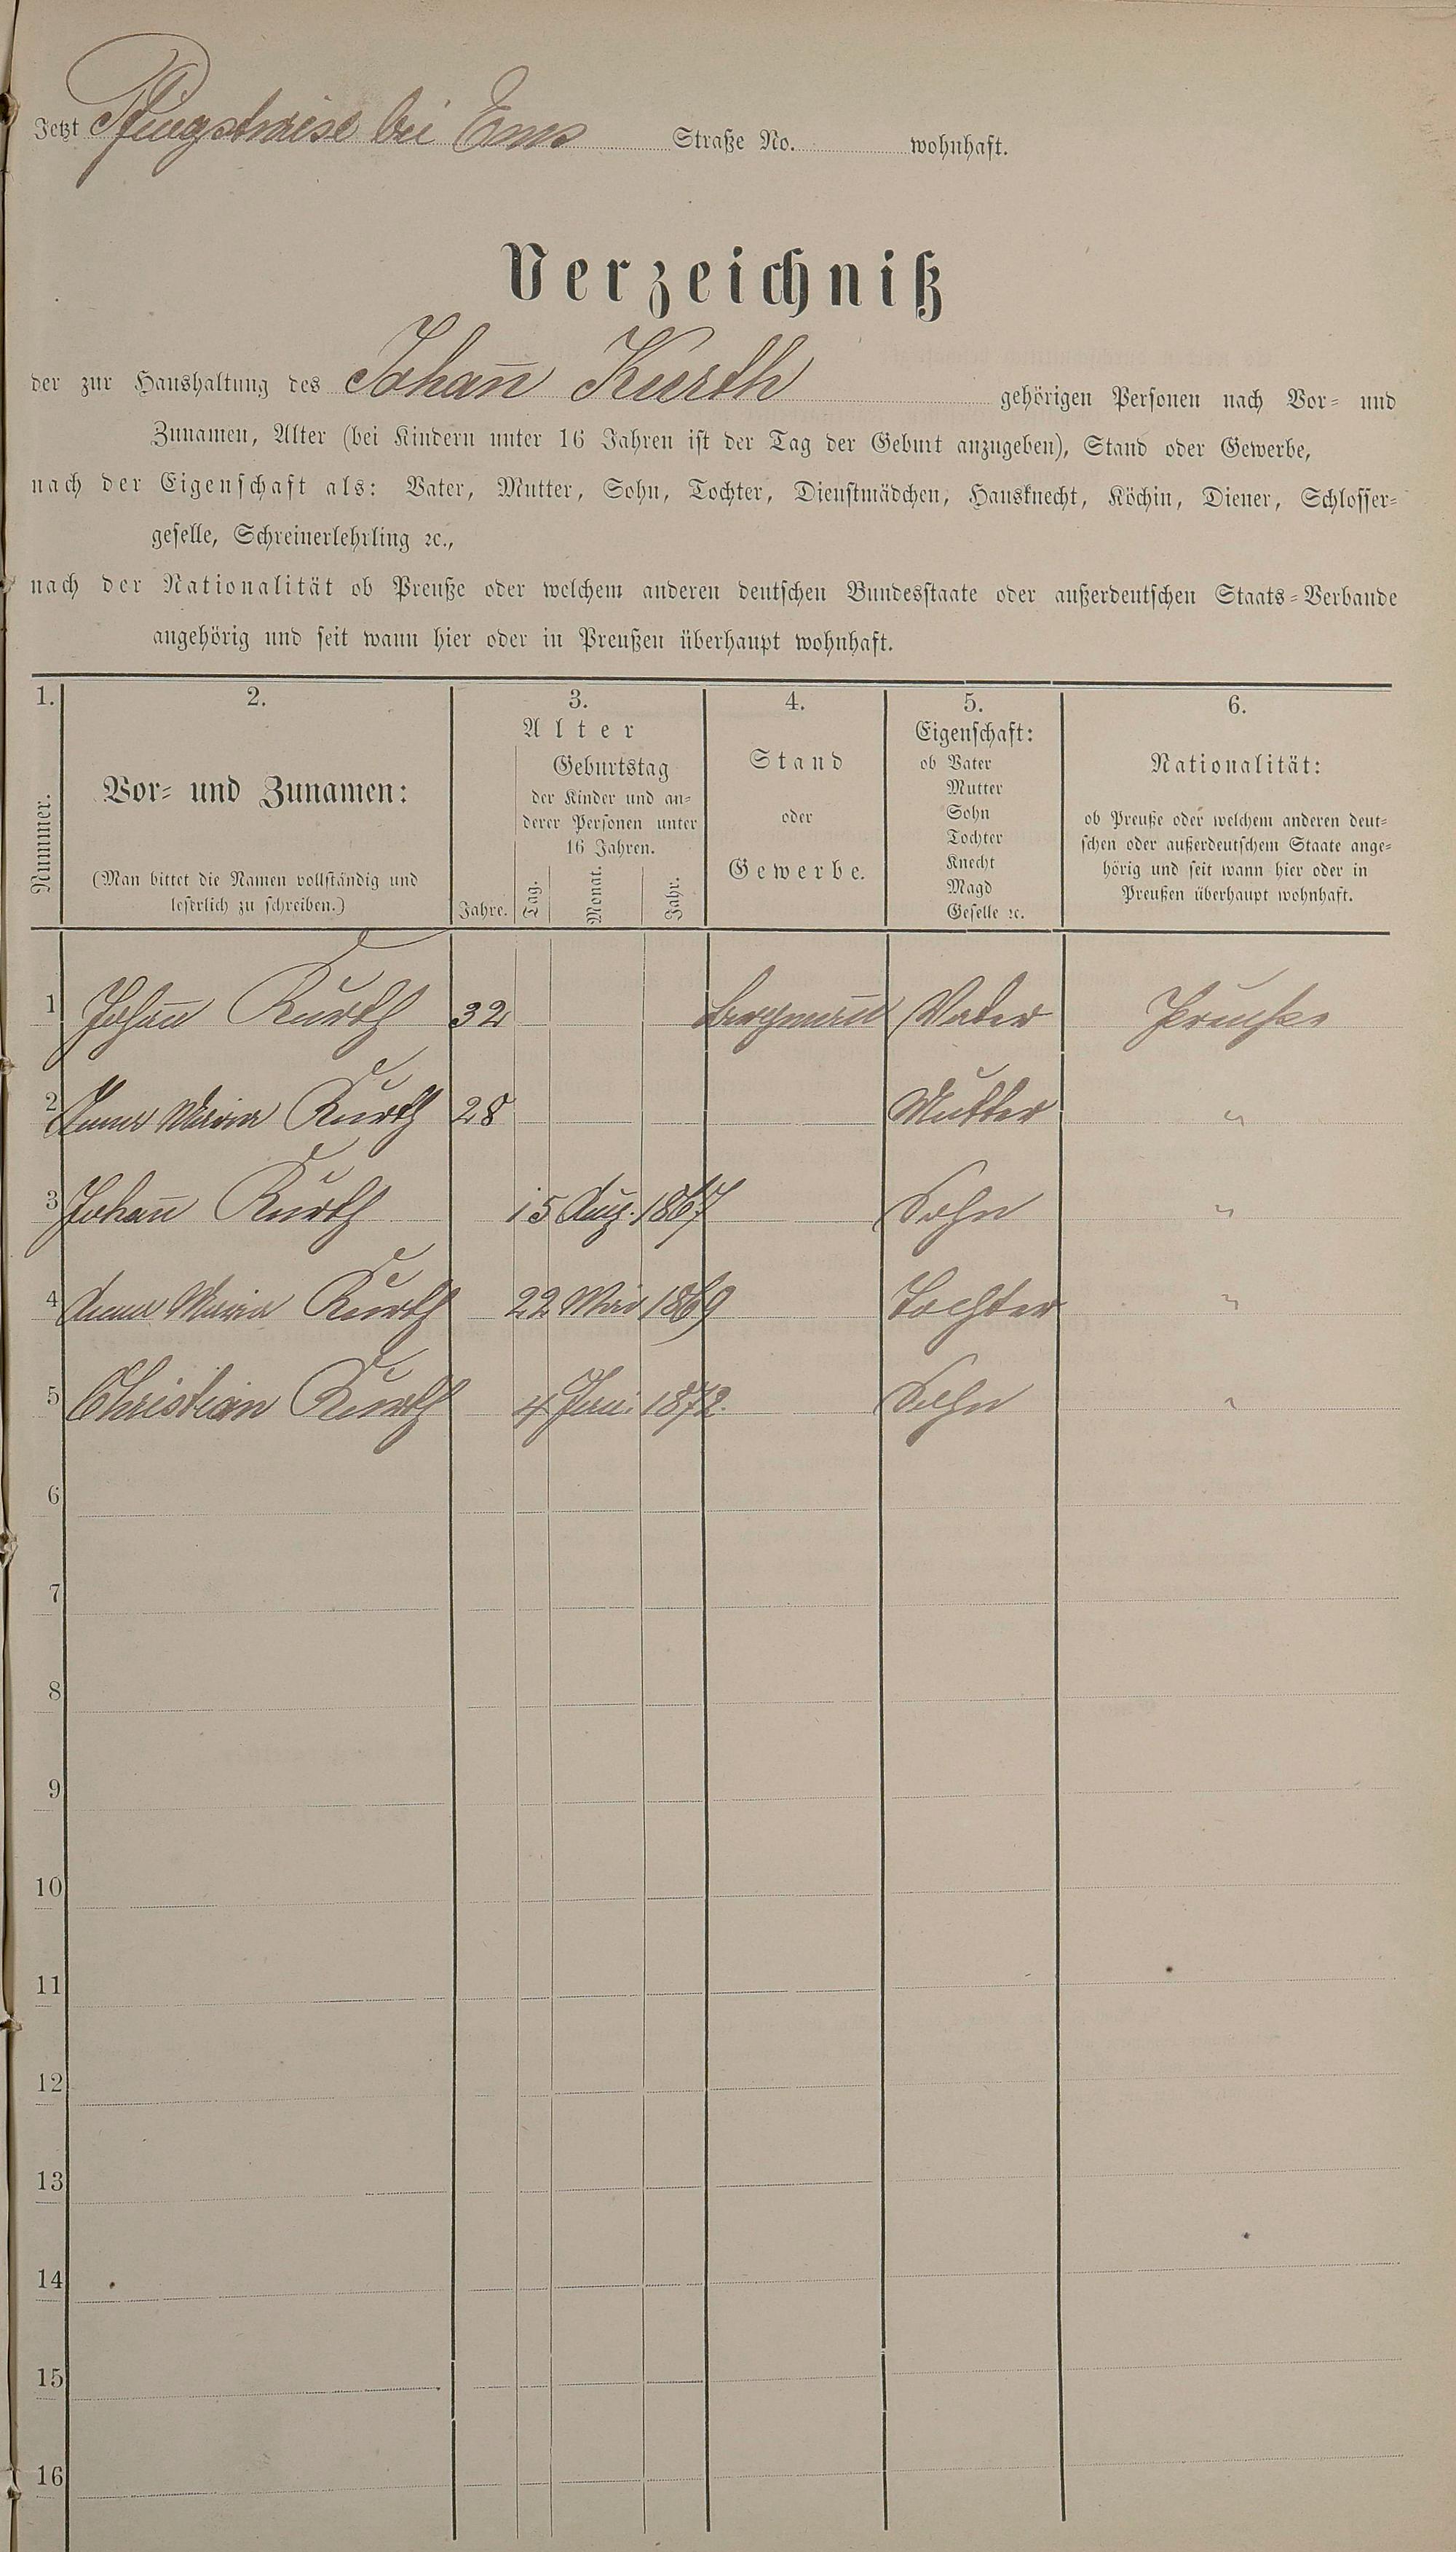 Jetzt Pfingstwiese bei Ems Straße No. wohnhaft.
Verzeichniß
der zur Haushaltung des Johan̄ Kurth gehörigen Personen nach Vor- und
Zunamen, Alter (bei Kindern unter 16 Jahren ist der Tag der Geburt anzugeben), Stand oder Gewerbe,
nach der Eigenschaft als: Vater, Mutter, Sohn, Tochter, Dienstmädchen, Hausknecht, Köchin, Diener, Schlosser-
geselle, Schreinerlehrling ꝛc.,
nach der Nationalität ob Preuße oder welchem anderen deutschen Bundesstaate oder außerdeutschen Staats-Verbande
angehörig und seit wann hier oder in Preußen überhaupt wohnhaft.
1.
Nummer.
2.
Vor- und Zunamen:
(Man bittet die Namen vollständig und
leserlich zu schreiben.)
3.
Alter
Geburtstag
der Kinder und an-
derer Personen unter
16 Jahren.
Jahre. Tag. Monat. Jahr.
4.
Stand
oder
Gewerbe.
5.
Eigenschaft:
ob Vater
Mutter
Sohn
Tochter
Knecht
Magd
Geselle ꝛc.
6.
Nationalität:
ob Preuße oder welchem anderen deut-
schen oder außerdeutschem Staate ange-
hörig und seit wann hier oder in
Preußen überhaupt wohnhaft.
1 Johan̄ Kurth 32 Bergman̄ Vater Preuße
2 Anna Maria Kurth 28 Mutter "
3 Johan̄ Kurth 15 Aug. 1867 Sohn "
4 Anna Maria Kurth 22 Mai 1869 Tochter "
5 Christian Kurth 4 Juni 1872. Sohn "
6
7
8
9
10
11
12
13
14
15
16